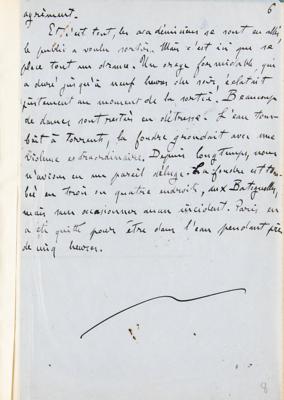 6
agrément.
Et c'est tout, les académiciens se sont en allés,
le public a voulu sortir. Mais c'est ici que se
place tout un drame. Un orage formidable, qui
a duré jusqu'à neuf heures du soir, éclatait
justement au moment de la sortie. Beaucoup
de dames sont restées en détresse. L'eau tom-
bait à torrents, la foudre grondait avec une
violence extraordinaire. Depuis longtemps, nous
n'avions eu un pareil déluge. La foudre est tom-
bée en trois ou quatre endroits, aux Batignolles,
mais sans occasionner aucun accident. Paris en
a été quitte pour être dans l'eau pendant près
de cinq heures.
8